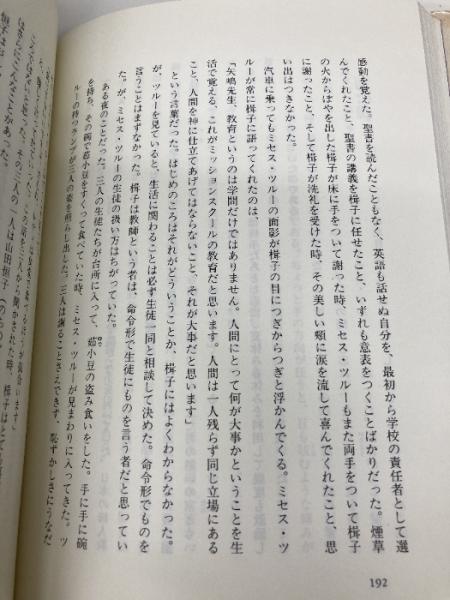 感動を覚えた。聖書を読んだこともなく、英語も話せぬ自分を、最初から学校の責任者として選
んでくれたこと、聖書の講義を楫子に任せたこと、いずれも意表をつくことばかりだった。煙草
の火からぼやを出した楫子が床に手をついて謝った時、ミセス・ツルーもまた両手をついて楫子
に謝ったこと、そして楫子が洗礼を受けた時、その美しい頰に涙を流して喜んでくれたこと、思
い出はつきなかった。
汽車に乗ってもミセス・ツルーの面影が楫子の目につぎからつぎと浮かんでくる。ミセス・ツ
ルーが常に楫子に語ってくれたのは、
「矢嶋先生、教育というのは学問だけではありません。人間にとって何が大事かということを生
活で覚える、これがミッションスクールの教育だと思います。人間は一人残らず同じ立場にある
こと、人間を神に仕立てあげてはならないこと、それが大事だと思います」
という言葉だった。はじめのころはそれがどういうことか、楫子にはよくわからなかった。
が、ツルーを見ていると、生活に関わることは必ず生徒一同と相談して決めた。命令形でものを
言うことはまずなかった。楫子は教師という者は、命令形で生徒にものを言う者だと思ってい
た。が、ミセス・ツルーの生徒の扱い方はちがっていた。
ある夜のことだった。三人の生徒たちが台所に入って、茹小豆の盗み食いをした。手に手に碗
を持ち、その碗で茹小豆をすくって食べていた時、ミセス・ツルーが見まわりに入ってきた。ツ
ルーの持つランプが三人の姿を照らし出した。三人は謝ることさえできず、恥ずかしさにうなだ
192